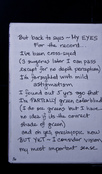 But back to eyes - My EYES
For the record...
I've been cross-eyed
(3 surgeries later I can pass
except for no depth perception)
I'm farsighted with mild
astigmatism
I found out 5 yrs ago that
I'm PARTIALLY green colorblind
(I do see greens but I have
no idea if its the correct
shade of green)
and oh yes, presbyopia, now!
BUT YET - I consider vision
my most important sense.